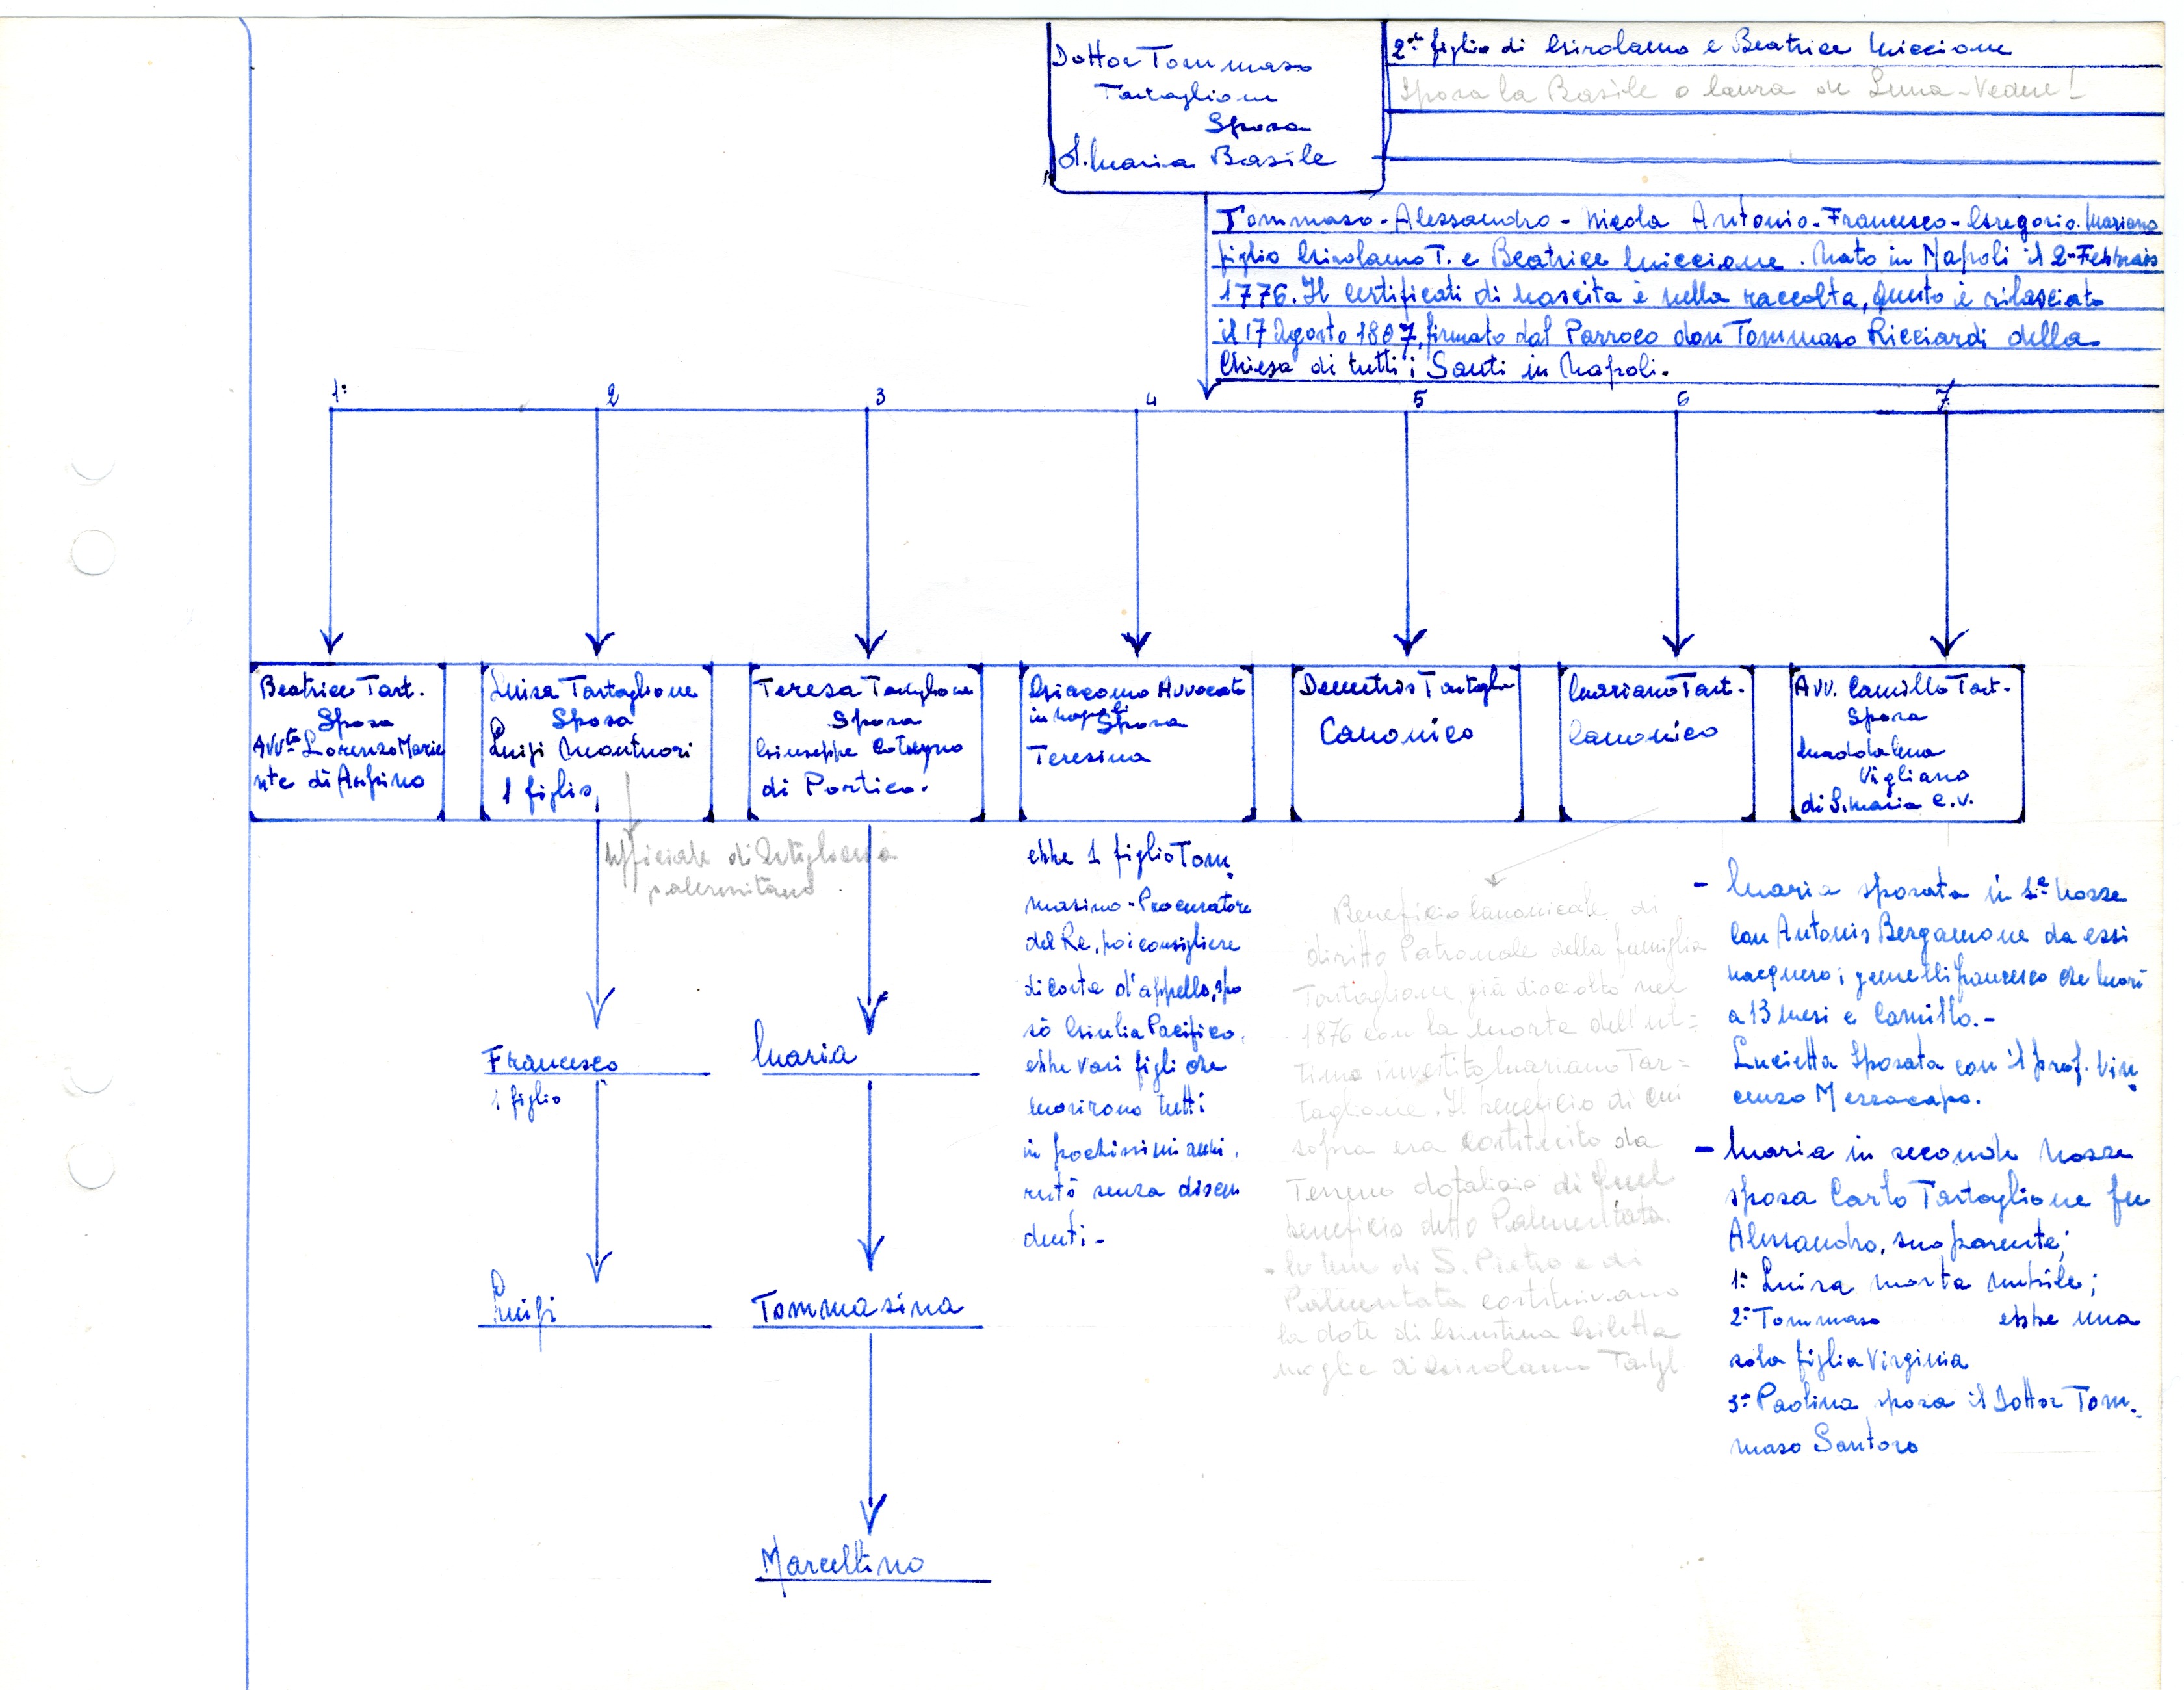 Dottor Tommaso
Tartaglione
Sposa
d. Maria Basile
2° figlio di Girolamo e Beatrice Miccione
Sposa la Basile o Laura de Luna - Vedere!
Tommaso - Alessandro - Nicola Antonio - Francesco - Gregorio. Mariano
figlio Girolamo T. e Beatrice Miccione. Nato in Napoli il 2 - Febbraio
1776. Il certificati di nascita è nella raccolta, questo è rilasciato
il 17 Agosto 1807, firmato dal Parroco don Tommaso Ricciardi della
Chiesa di tutti i Santi in Napoli.
1° 2 3 4 5 6 7
Beatrice Tart.
Sposa
Avv.to Lorenzo Marie
nte di Arpino
Luisa Tartaglione
Sposa
Luigi Montuori
1 figlio,
ufficiale di Artiglieria
palermitano
Francesco
1 figlio
Luigi
Teresa Tartaglione
Sposa
Giuseppe Cotugno
di Portico.
Maria
Tommasina
Marcellino
Giacomo Avvocato
in Napoli Sposa
Teresina
ebbe 1 figlio Tom
masino - Procuratore
del Re, poi consigliere
di Corte d'appello, spo
sò Giulia Pacifico,
ebbe vari figli che
morirono tutti
in pochissimi anni,
restò senza discen
denti -
Demetrio Tartagli
Canonico
Mariano Tart.
Canonico
Beneficio Canonicale di
diritto Patronale della famiglia
Tartaglione, già disciolto nel
1876 con la morte dell'ul=
timo investito Mariano Tar=
taglione. Il beneficio di cui
sopra era costituito da
Terreno dotalicio di quel
beneficio detto Palmentata.
di S. Pietro e di
Palmentata costituivano
la dote di Giustina Giletta
moglie di Girolamo Tartgl
Avv. Camillo Tart.
Sposa
Maddalena
Vigliano
di S. Maria C. V.
- Maria sposata in 1e nozze
con Antonio Bergamone da essi
nacquero i gemelli francesco che morì
a 13 mesi e Camillo. -
Lucietta Sposata con il prof. Vin
cenzo Mezzacapo.
- Maria in seconde nozze
sposa Carlo Tartaglione fu
Alessandro, suo parente;
1° Luisa morta nubile;
2° Tommaso ebbe una
sola figlia Virginia
3° Paolina sposa il Dottor Tom.
maso Santoro